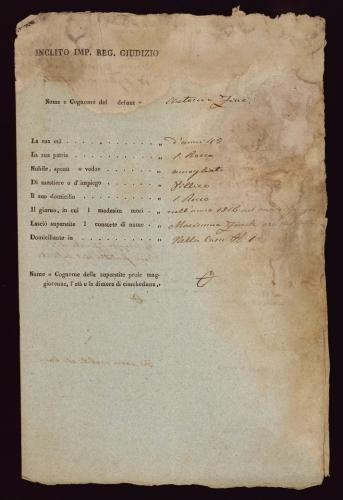 INCLITO IMP. REG. GIUDIZIO
Nome e Cognome del defunt
La sua età „ d'anni 45
La sua patria „ S. Rocco
Nubile, sposat o vedov „ amogliato
Di mestiere o d'impiego „ Villico
Il suo domicilio „ S. Rocco
Il giorno, in cui l medesim morì „ nell'anno 1816
Lasciò superstite l consorte di nome „ Marianna
Domiciliante in „ Nella Casa N. 1
Nome e Cognome della superstite prole mag-
giorenne, l'età e la dimora di ciascheduno „